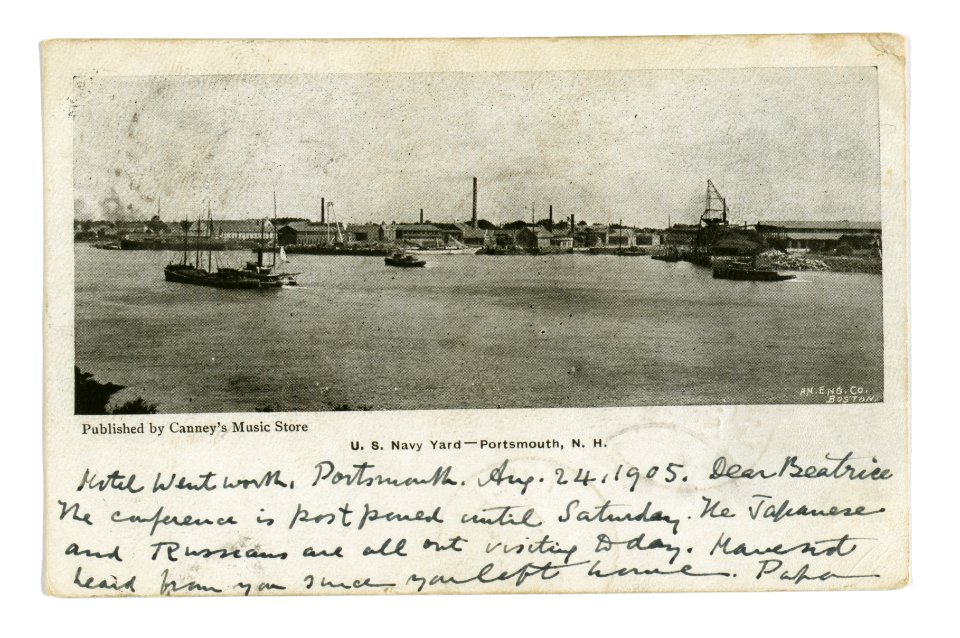 AM. ENG. CO.
BOSTON.
Published by Canney's Music Store
U. S. Navy Yard—Portsmouth, N. H.
Hotel Wentworth, Portsmouth. Aug. 24, 1905. Dear Beatrice
The conference is postponed until Saturday. The Japanese
and Russians are all out visiting today. Have not
heard from you since you left home. Papa